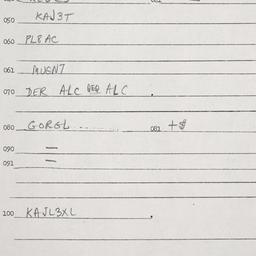 050 KAJ3T
060 PL8AC
061 MUGN7
070 DER ALC DER ALC .
080 GORGL ........ 081 +$
090 =
091
100 KAJL3XL .